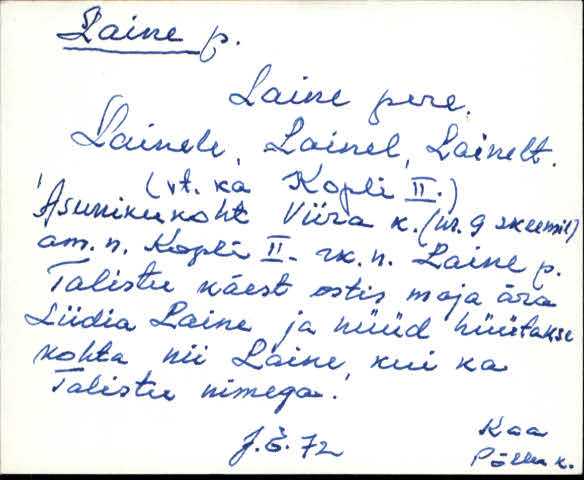 Laine p.
Laine pere.
Lainele, Lainel, Lainelt.
(vt. ka Kopli II.)
Asunikukoht Viira k. (nr. 9 skeemil)
am. n. Kopli II. rk. n. Laine p.
Talistu käest ostis maja ära
Liidia Laine ja nüüd hüütakse
kohta nii Laine, kui ka
Talistu nimega.
J.E. 72
Kaa
Põlla k.